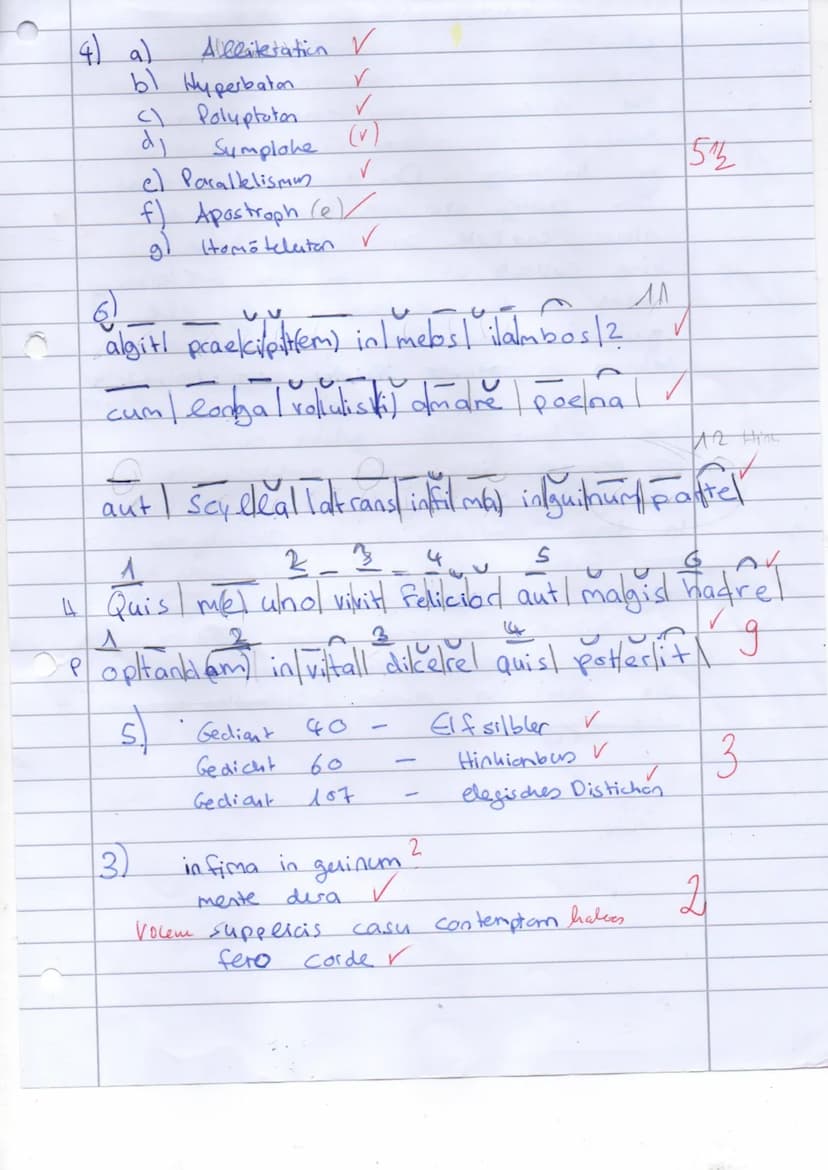 4) a) Alliteration ✓
b) Hyperbaton ✓
c) Polyptoton ✓
d) Symploke (✓)
5½
e) Parallelismus ✓
f) Apostroph (e) ✓
g) Homöteleuton ✓
6)
11
agit| prae|cipit(em) in| me|os| i|ambos|? ✓
cum| longa| vo|luist(i) amare| poena| ✓
12
aut| Scylla| latrans| infim(a) in|guinum| parte| ✓
1 2 3 4 5 6
H Quis| m(e) uno| vivit| felicior| aut| magis| hac re| ✓
1 2 3 4
P op|tand(am) in| vita|| dicere| quis| poterit| ✓ 9
5) Gedicht 40 - Elfsilbler ✓
Gedicht 60 - Hinkiambus ✓
3
Gedicht 107 - elegisches Distichon ✓
3) infima in guinum ?
mente dura ✓
2
vocem supplicis casu contemptam
fero corde ✓